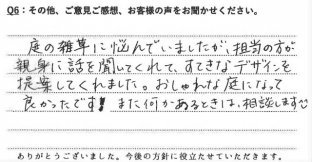 Q6：その他、ご意見ご感想、お客様の声をお聞かせください。
庭の雑草に悩んでいましたが、担当の方が
親身に話を聞いてくれて、すてきなデザインを
提案してくれました。おしゃれな庭になって
良かったです！また何かあるときは、相談します
ありがとうございました。今後の方針に役立たせていただきます。